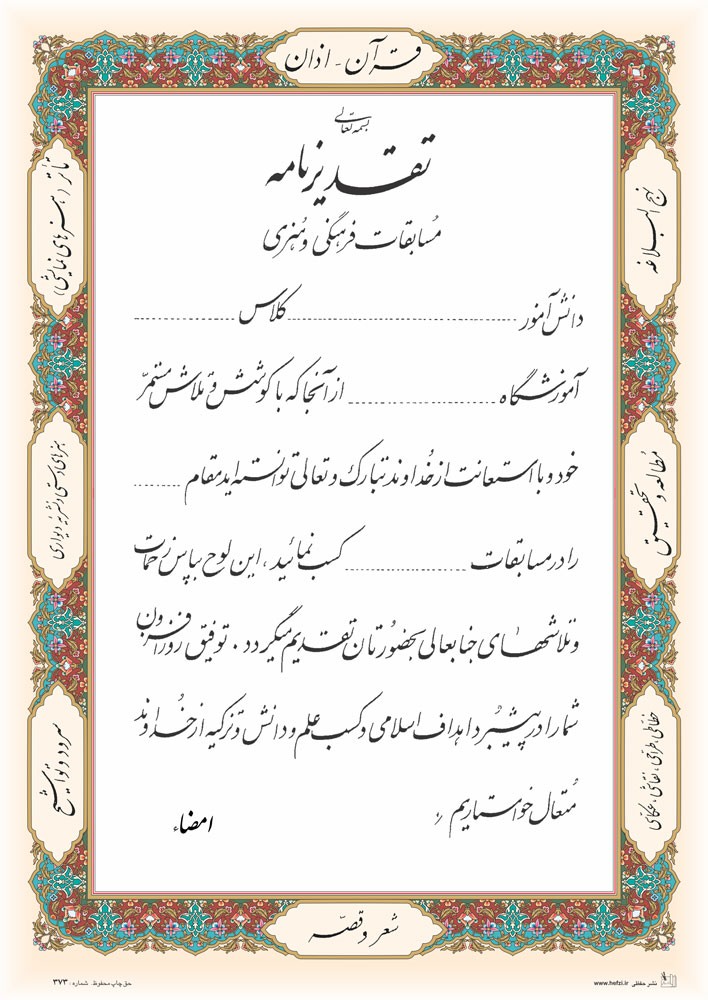 قرآن - اذان
بسمه تعالی
تقدیرنامه
مسابقات فرهنگی و هنری
دانش آموز ........................ کلاس ................
آموزشگاه ........................ از آنجا که با کوشش و تلاش مستمرّ
خود و با استعانت از خُداوند تبارک و تعالی توانسته اید مقام ........
را در مسابقات .................... کسب نمائید ، این لوح بپاس زحمات
و تلاشهای جنابعالی بحضورتان تقدیم میگردد . توفیق روزافزون
شما را در پیشبرد اهداف اسلامی و کسب علم و دانش و تزکیه از خُداوند
مُتعال خواستاریم
امضاء
نهج البلاغه
مُطالعه و تحقیق
خطاطی، طراحی، نقاشی، عکاسی
تأتر (هنرهای نمایشی)
هنرهای دستی و نشریه دیواری
سرود و تواشیح
شعر و قصّه
نشر حفظی www.hefzi.ir
حق چاپ محفوظ . شماره : ۳۷۳